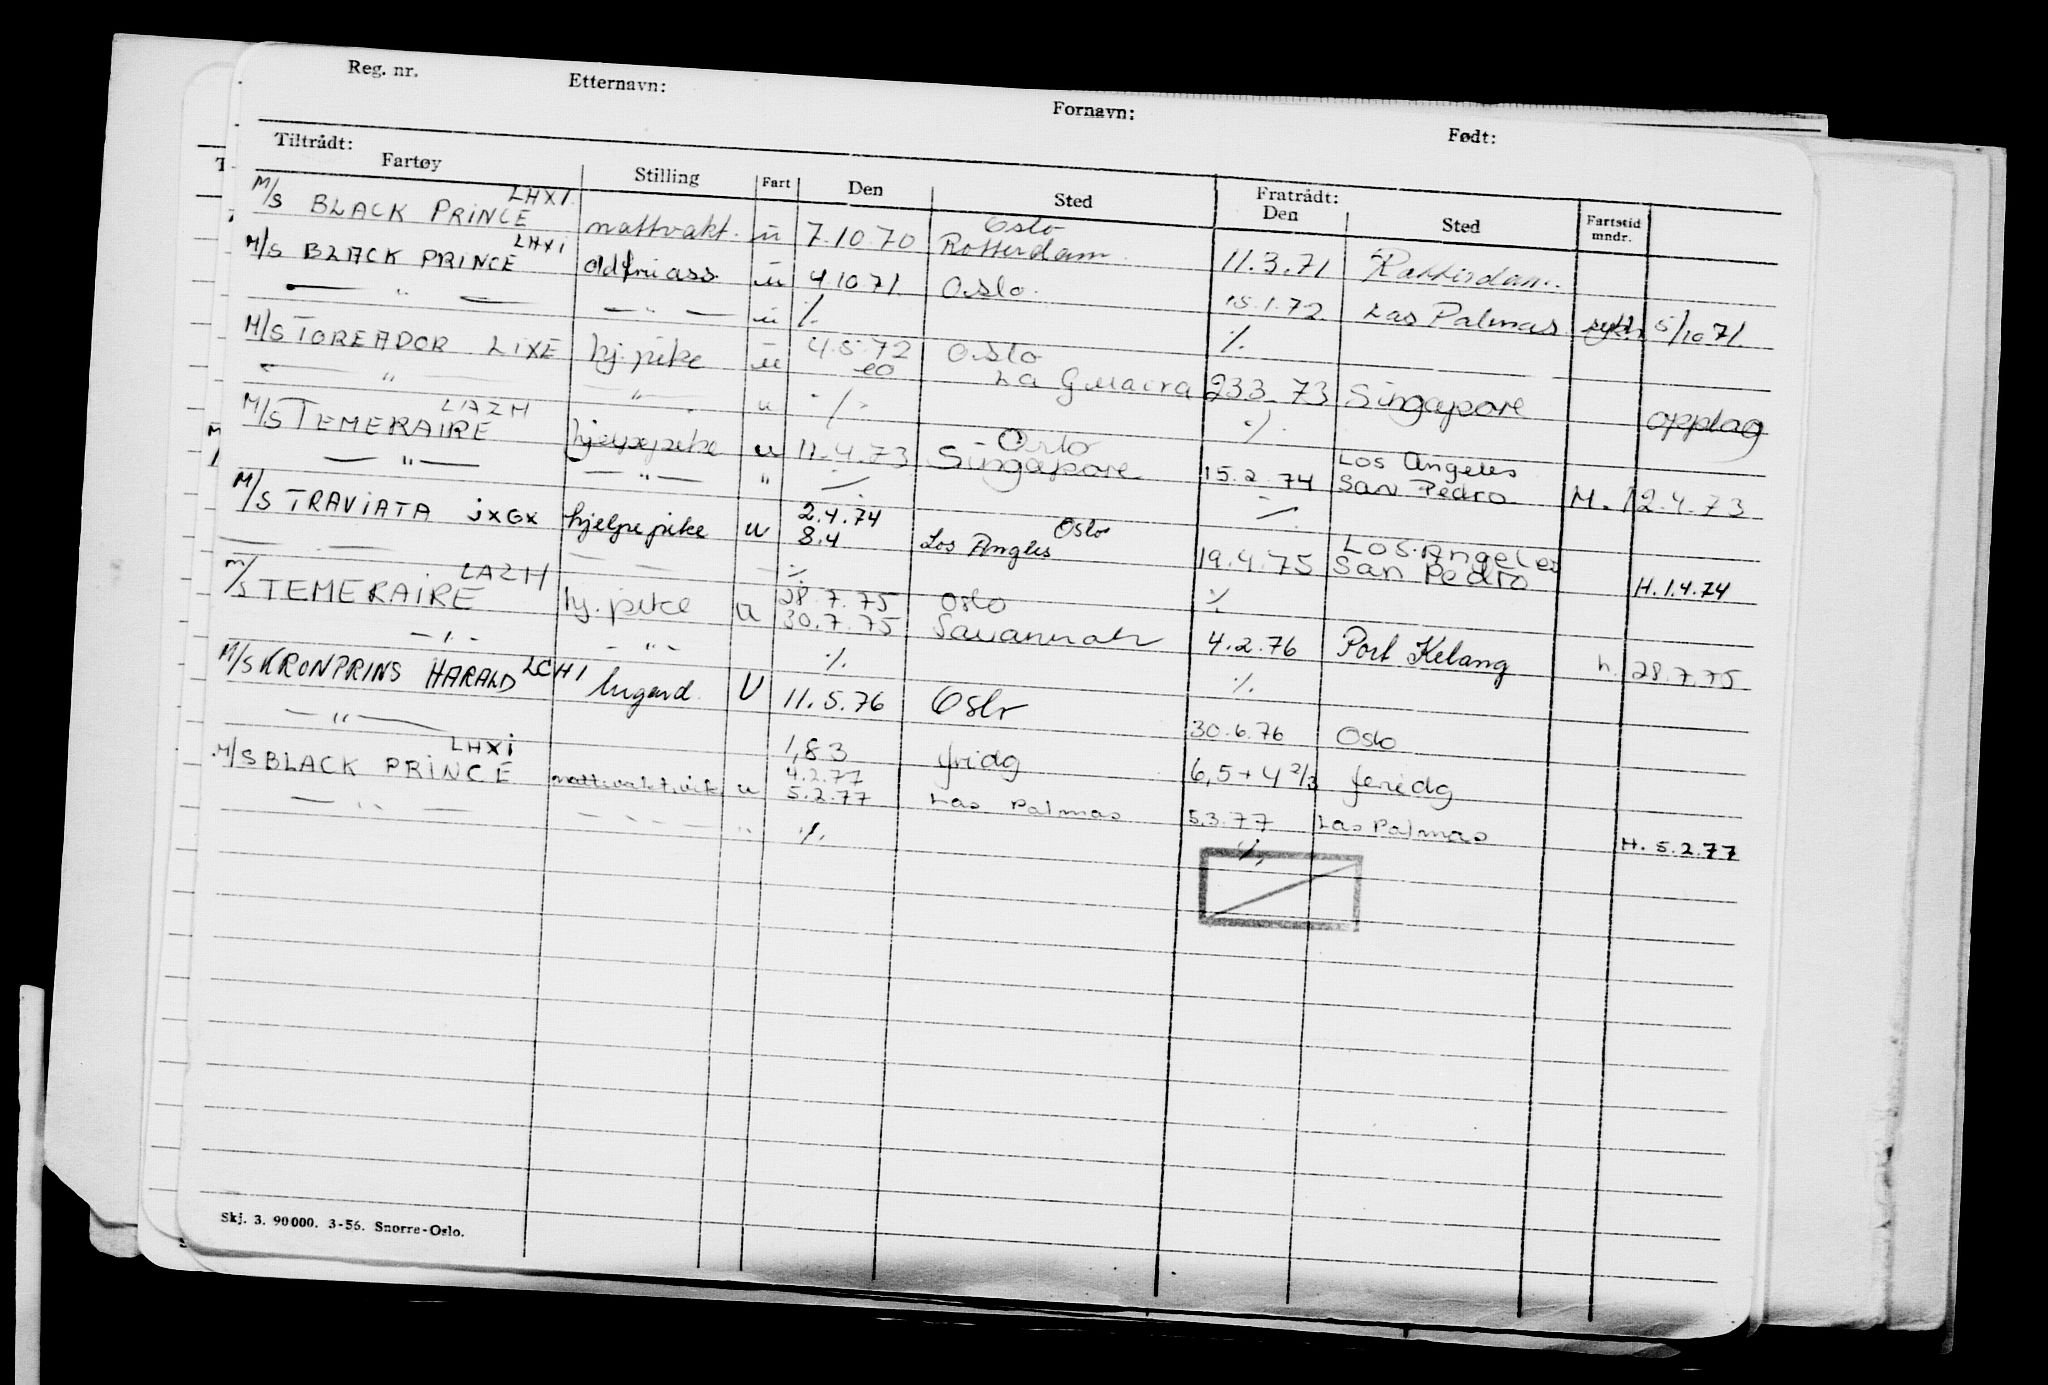 Reg. nr. Etternavn: Fornavn: Født:
Tiltrådt: Fratrådt:
Fartøy Stilling Fart Den Sted Den Sted Fartstid mndr.
M/S BLACK PRINCE LHXI nattvakt. u 7.10.70 Oslo Rotterdam. 11.3.71 Rotterdam.
M/S BLACK PRINCE LHXI oldfrueass u 4.10.71 Oslo. 15.1.72 Las Palmas 5/10 71.
— " — — " — u ./. ./.
M/S TOREADOR LIXE hj.pike u 4.5.72 Oslo
La Guaira 23.3.73 Singapore opplag
— " — — " — u ./. ./.
M/S TEMERAIRE LAZH hjelpepike u 11.4.73 Oslo Singapore 15.2.74 Los Angeles San Pedro M. 12.4.73
— " — — " — "
M/S TRAVIATA JXGX hjelpepike u 2.4.74 Oslo
8.4 Los Angles 19.4.75 Los Angeles San Pedro H. 1.4.74
— — — — ./. ./.
M/S TEMERAIRE LAZH hj. pike u 28.7.75 Oslo
30.7.75 Savannah 4.2.76 Port Kelang h. 28.7.75
— " — - " - ./. ./.
M/S KRONPRINS HARALD LCHI lugard. U 11.5.76 Oslo 30.6.76 Oslo
— " — 1,83 fridg 6,5 + 4 2/3 feriedg
M/S BLACK PRINCE LHXI nattevakt.vik u 4.2.77
5.2.77 Las Palmas 5.3.77 Las Palmas H. 5.2.77
— " — — " — " ./. ./.
Skj. 3. 90000. 3-56. Snorre-Oslo.